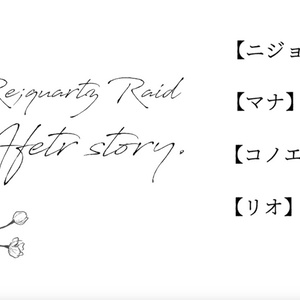 Re;quartz Raid
Afetr story.
【ニジョ
【マナ】
【コノエ
【リオ】